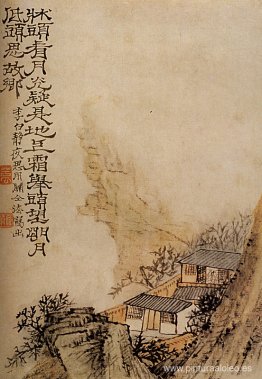 牀頭看月光疑是地上霜舉頭望明月
低頭思故鄉
李白靜夜思
www.pinturasaloleo.es